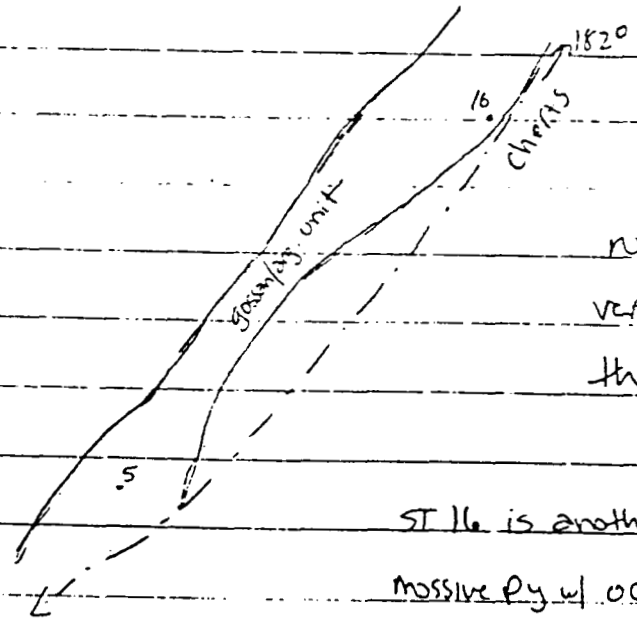 1820
16
Cherts
gossan/py. unit
ver
th
.5
ST 16 is anoth
Massive Py w/ oc